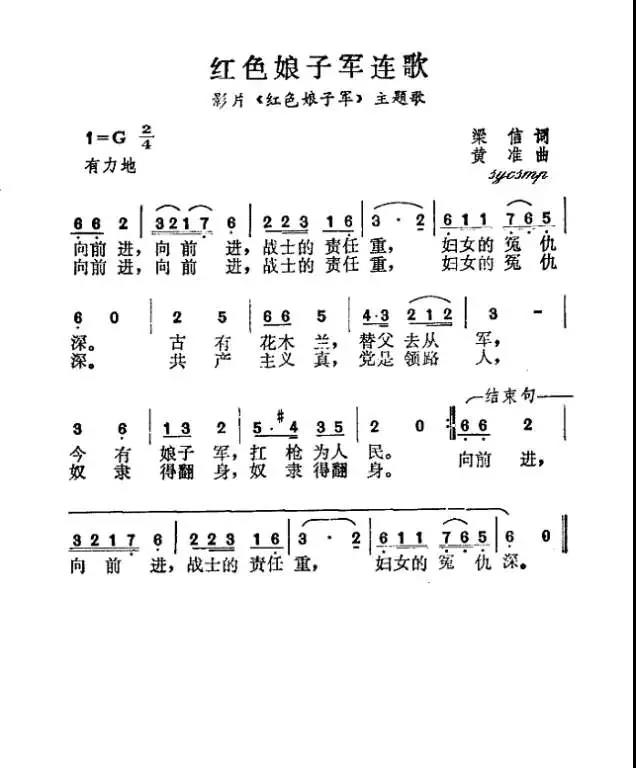 红色娘子军连歌
影片《红色娘子军》主题歌
1=G 2/4
有力地
梁信词
黄准曲
sycsmp
6 6 2 | 3 2 1 7 6 | 2 2 3 1 6 | 3 · 2 | 6 1 1 7 6 5 |
向前进，向前进，战士的责任重，妇女的冤仇
向前进，向前进，战士的责任重，妇女的冤仇
6 0 | 2 5 | 6 6 5 | 4·3 2 1 2 | 3 - |
深。古有花木兰，替父去从军，
深。共产主义真，党是领路人，
结束句
3 6 | 1 3 2 | 5·#4 3 5 | 2 0 :‖ 6 6 2 |
今有娘子军，扛枪为人民。向前进，
奴隶得翻身，奴隶得翻身。
3 2 1 7 6 | 2 2 3 1 6 | 3 · 2 | 6 1 1 7 6 5 | 6 0 ‖
向前进，战士的责任重，妇女的冤仇深。